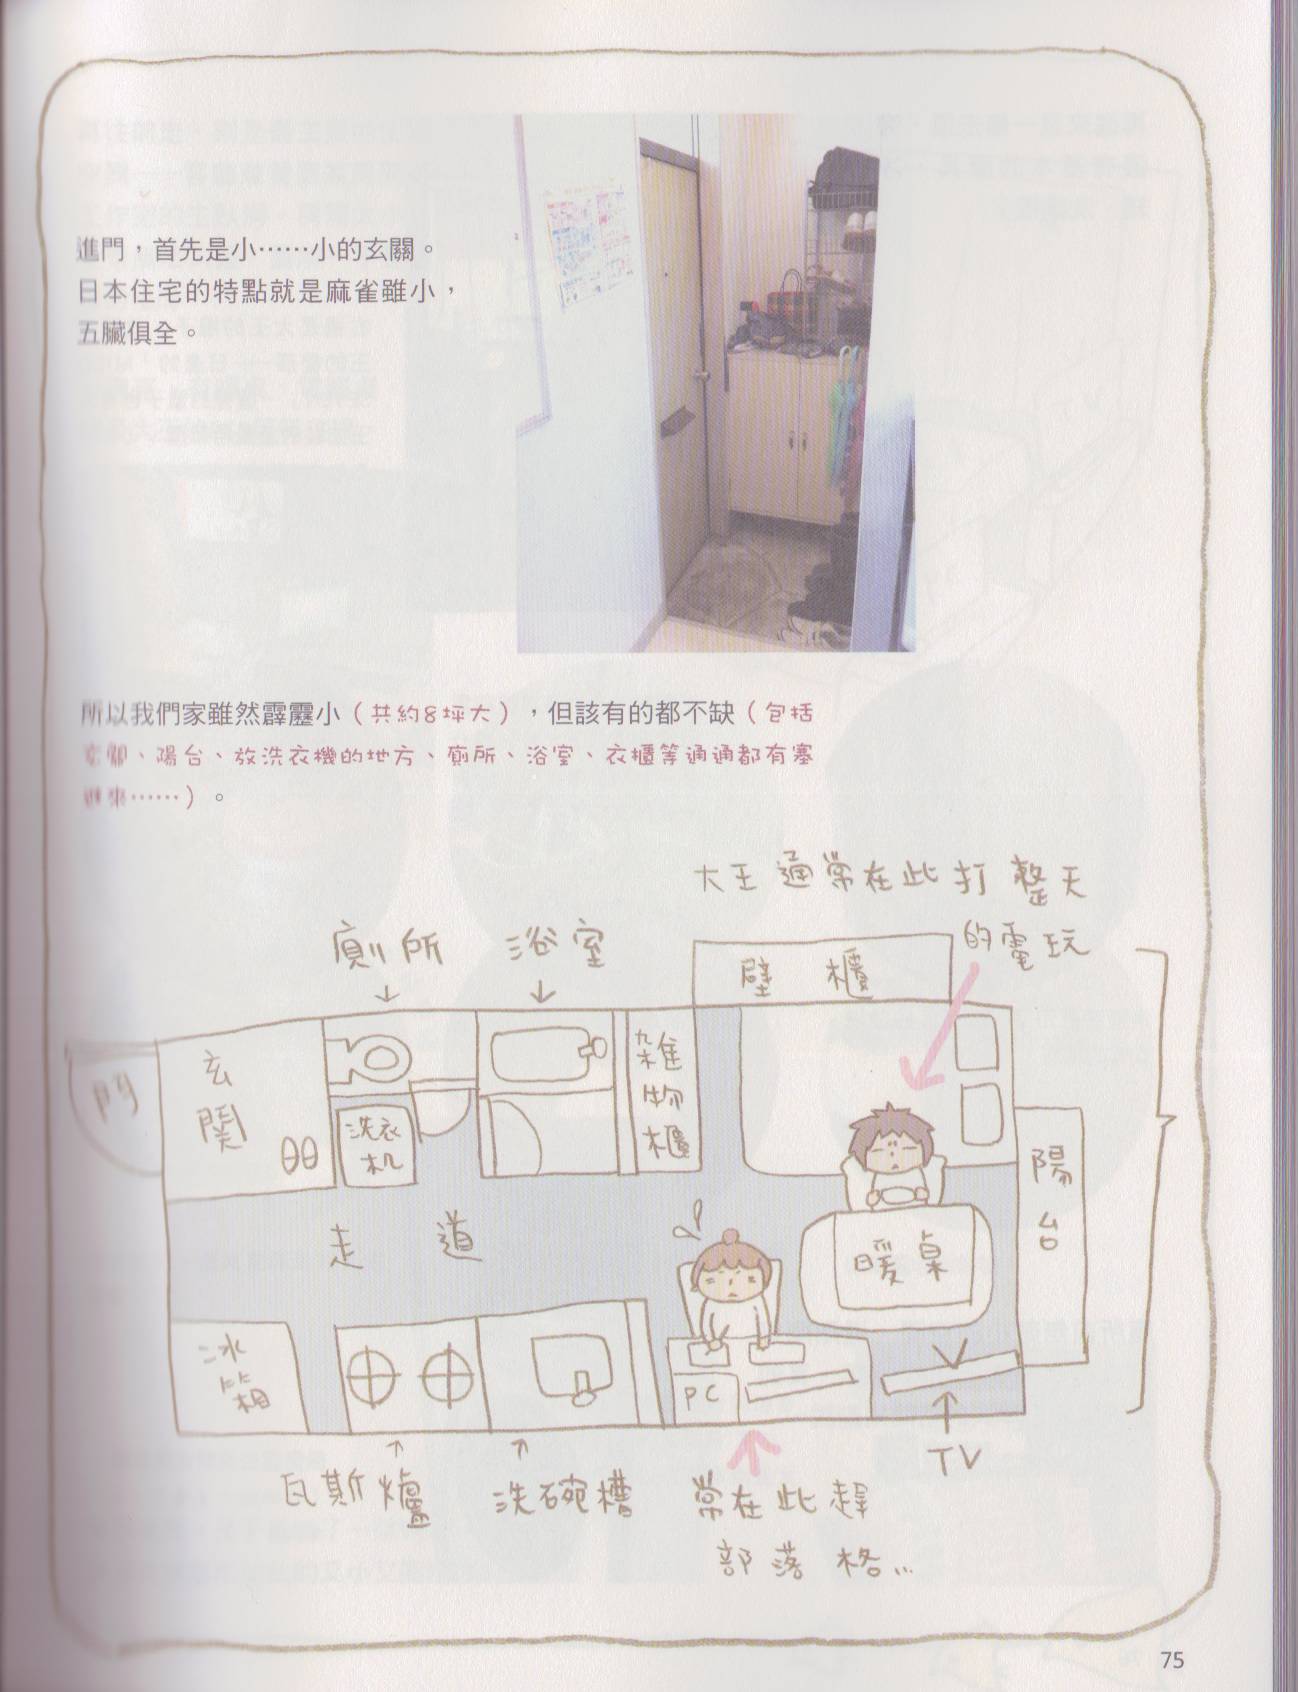 進門，首先是小……小的玄關。
日本住宅的特點就是麻雀雖小，
五臟俱全。
所以我們家雖然霹靂小（共約8坪大），但該有的都不缺（包括
玄關、陽台、放洗衣機的地方、廁所、浴室、衣櫃等通通都有塞
進來……）。
大王通常在此打整天
的電玩
廁所
浴室
壁櫃
門
玄関
洗衣机
雑物櫃
陽台
走道
暖桌
冰箱
PC
TV
瓦斯爐
洗碗槽
常在此趕
部落格...
75